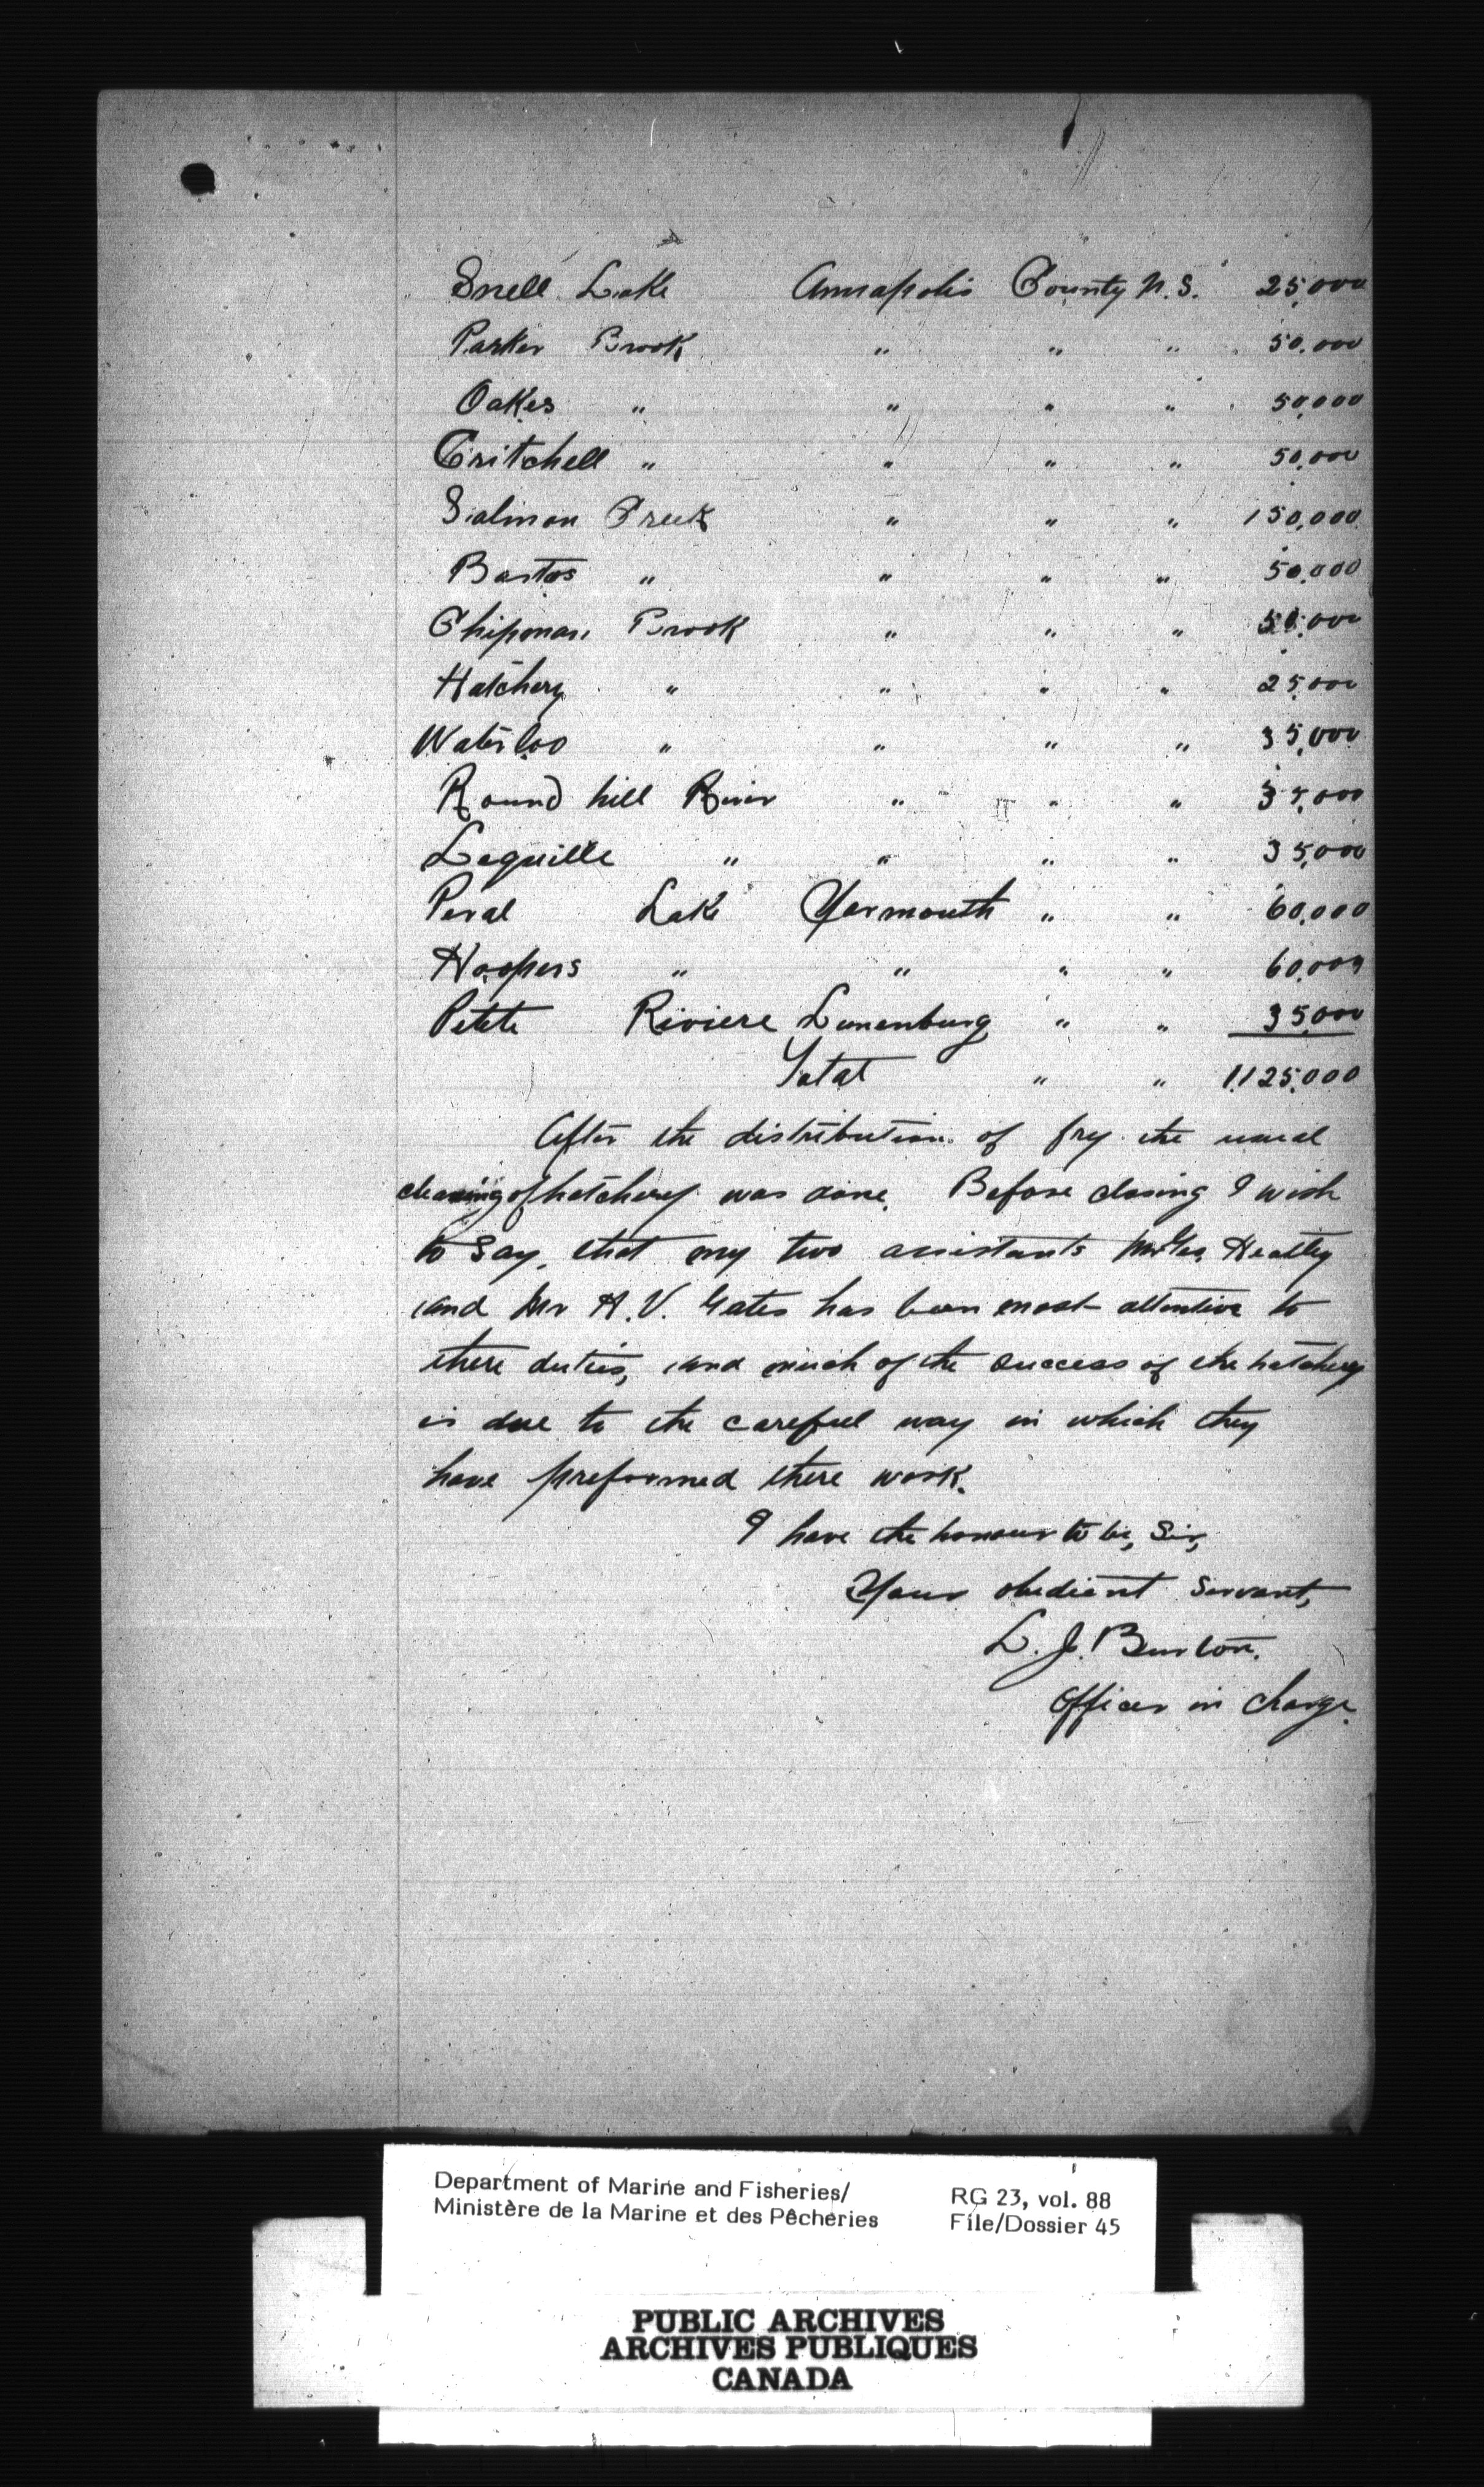 Snell Lake Annapolis County N.S. 25,000
Parker Brook " " " 50,000
Oakes " " " " 50,000
Critchell " " " " 50,000
Salmon Creek " " " 150,000
Bartos " " " " 50,000
Chipman Brook " " " 50,000
Hatchery " " " " 25,000
Waterloo " " " " 35,000
Round hill River " " " 35,000
Lequille " " " " 35,000
Peral Lake Yarmouth " " 60,000
Hoopers " " " " 60,000
Petite Riviere Lunenburg " " 35,000
Total " " 1,125,000
After the distribution of fry the usual
cleaning of hatchery was done. Before closing I wish
to say, that my two assistants Mr Heatley
and Mr H.V. Gates has been most attentive to
there duties, and much of the success of the hatchery
is due to the careful way in which they
have preformed there work.
I have the honour to be, Sir,
Your obedient servant,
L. J. Burton.
Officer in charge.
Department of Marine and Fisheries/
Ministère de la Marine et des Pêcheries
RG 23, vol. 88
File/Dossier 45
PUBLIC ARCHIVES
ARCHIVES PUBLIQUES
CANADA